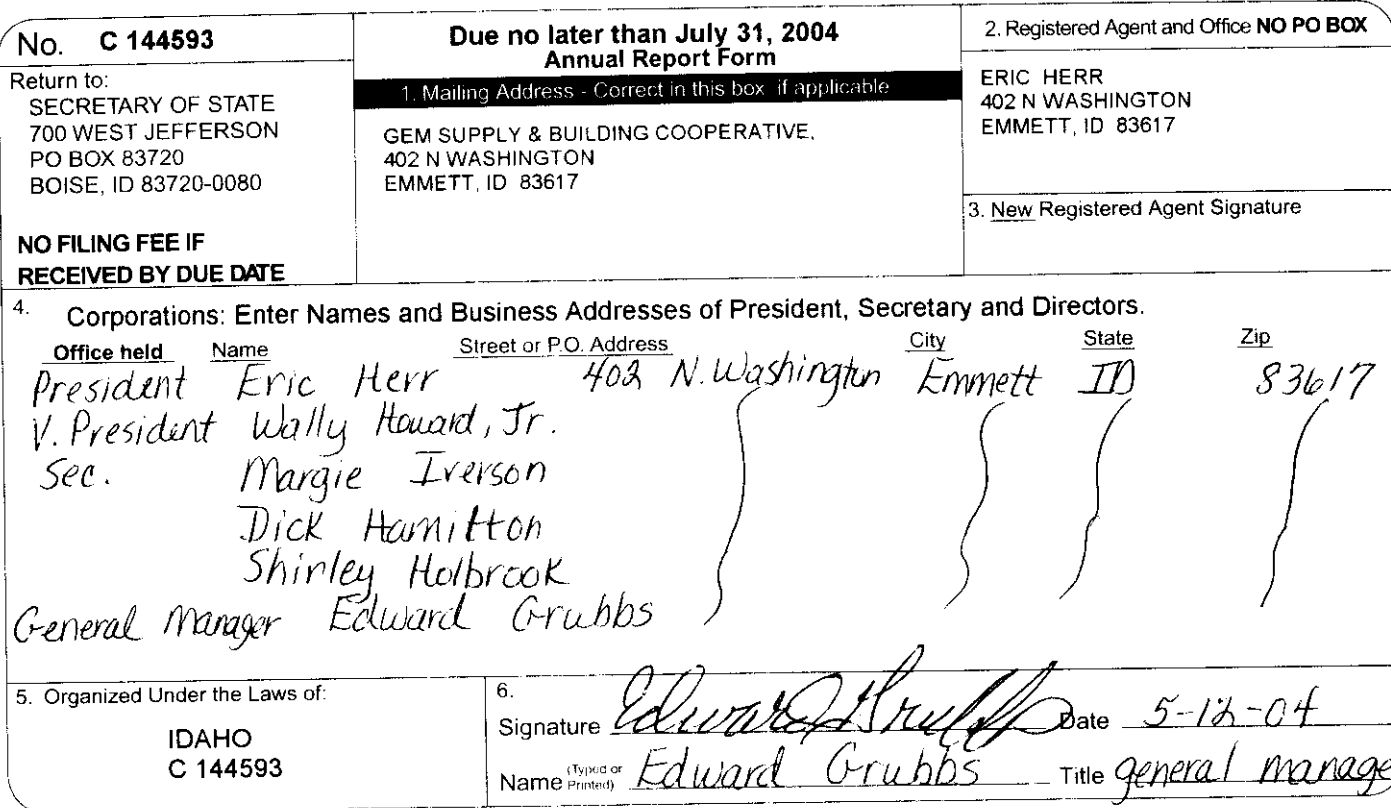 No. C 144593
Return to:
SECRETARY OF STATE
700 WEST JEFFERSON
PO BOX 83720
BOISE, ID 83720-0080
NO FILING FEE IF
RECEIVED BY DUE DATE
Due no later than July 31, 2004
Annual Report Form
1. Mailing Address - Correct in this box if applicable
GEM SUPPLY & BUILDING COOPERATIVE,
402 N WASHINGTON
EMMETT, ID 83617
2. Registered Agent and Office NO PO BOX
ERIC HERR
402 N WASHINGTON
EMMETT, ID 83617
3. New Registered Agent Signature
4. Corporations: Enter Names and Business Addresses of President, Secretary and Directors.
Office held Name Street or P.O. Address City State Zip
President Eric Herr 402 N. Washington Emmett ID 83617
V. President Wally Howard, Jr.
Sec. Margie Iverson
Dick Hamilton
Shirley Holbrook
General Manager Edward Grubbs
5. Organized Under the Laws of:
IDAHO
C 144593
6.
Signature Edward Grubbs Date 5-12-04
Name (Typed or Printed) Edward Grubbs Title general manage